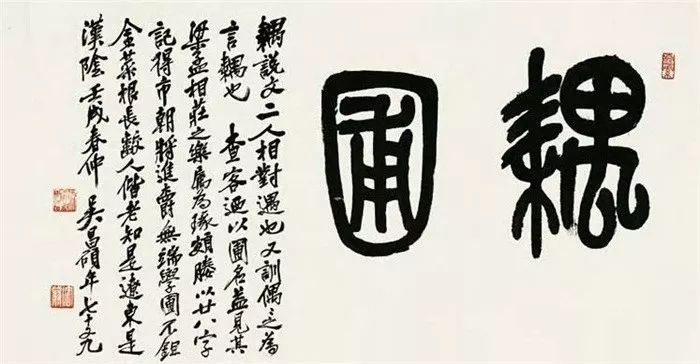 耦圃
耦說文二人相對遇也又訓偶之為
言耦也 查客迺以圃名益見其
梁孟相莊之樂屬為瑑額媵以廿八字
記得市朝將進爵無端學圃不鉏
金菜根長齩人偕老知是遼東是
漢陰壬戌春仲 吳昌碩年七十九